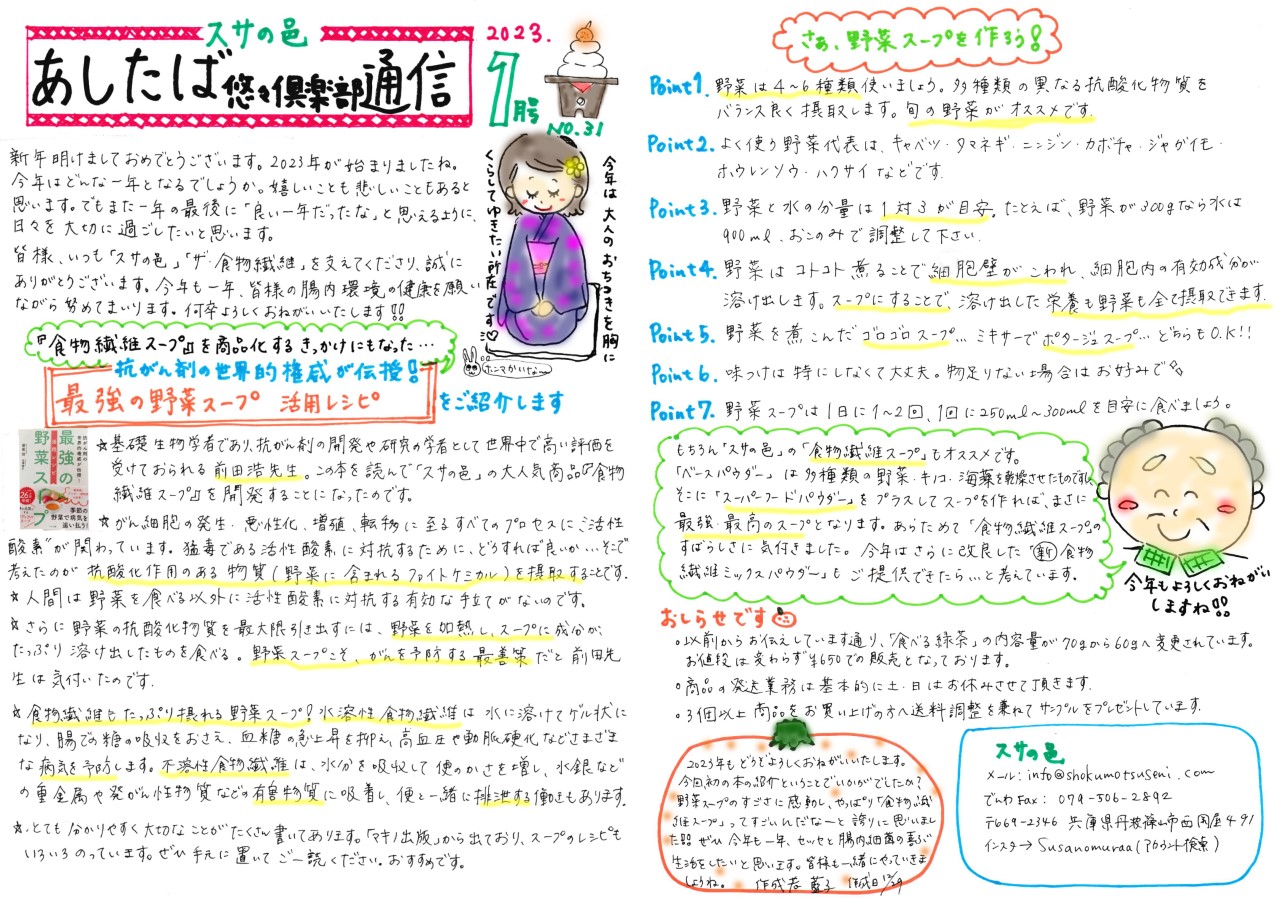 スサの邑
あしたば悠々倶楽部通信
2023.
1月号
NO.31
新年明けましておめでとうございます。2023年が始まりましたね。
今年はどんな一年となるでしょうか。嬉しいことも悲しいこともあると
思います。でもまた一年の最後に「良い一年だったな」と思えるように、
日々を大切に過ごしたいと思います。
皆様、いつも「スサの邑」「ザ・食物繊維」を支えてくださり、誠に
ありがとうございます。今年も一年、皆様の腸内環境の健康を願い
ながら努めてまいります。何卒よろしくおねがいいたします!!
今年は大人のおちつきを胸に
くらしてゆきたい所存です♡
ホンマかいな〜
『食物繊維スープ』を商品化するきっかけにもなった…
抗がん剤の世界的権威が伝授!
最強の野菜スープ 活用レシピ
をご紹介します
最強の
野菜スープ
☆基礎生物学者であり、抗がん剤の開発や研究の学者として世界中で高い評価を
受けておられる前田浩先生。この本を読んで「スサの邑」の大人気商品『食物
繊維スープ』を開発することになったのです。
☆がん細胞の発生・悪性化、増殖、転移に至るすべてのプロセスに、“活性
酸素”が関わっています。猛毒である活性酸素に対抗するために、どうすれば良いか…そこで
考えたのが抗酸化作用のある物質(野菜に含まれるファイトケミカル)を摂取することです。
☆人間は野菜を食べる以外に活性酸素に対抗する有効な手立てがないのです。
☆さらに野菜の抗酸化物質を最大限引き出すには、野菜を加熱し、スープに成分が、
たっぷり溶け出したものを食べる。野菜スープこそ、がんを予防する最善策だと前田先
生は気付いたのです.
☆食物繊維もたっぷり摂れる野菜スープ!水溶性食物繊維は水に溶けてゲル状に
なり、腸での糖の吸収をおさえ、血糖の急上昇を抑え、高血圧や動脈硬化などさまざま
な病気を予防します。不溶性食物繊維は、水分を吸収して便のかさを増し、水銀など
の重金属や発がん性物質などの有害物質に吸着し、便と一緒に排泄する働きもあります。
☆とても分かりやすく大切なことがたくさん書いてあります。「マキノ出版」から出ており、スープのレシピも
いろいろのっています。ぜひ手元に置いてご一読ください。おすすめです。
さぁ、野菜スープを作ろう!
Point1. 野菜は4~6種類使いましょう。多種類の異なる抗酸化物質を
バランス良く摂取します。旬の野菜がオススメです.
Point2. よく使う野菜代表は、キャベツ・タマネギ・ニンジン・カボチャ・ジャガイモ・
ホウレンソウ・ハクサイなどです.
Point3. 野菜と水の分量は1対3が目安。たとえば、野菜が300gなら水は
900ml、おこのみで調整して下さい.
Point4. 野菜はコトコト煮ることで細胞壁がこわれ、細胞内の有効成分が
溶け出します。スープにすることで、溶け出した栄養も野菜も全て摂取できます.
Point5. 野菜を煮こんだゴロゴロスープ…ミキサーでポタージュスープ…どちらもO.K!!
Point6. 味つけは特にしなくて大丈夫。物足りない場合はお好みで
Point7. 野菜スープは1日に1~2回、1回に250ml~300mlを目安に食べましょう。
もちろん「スサの邑」の「食物繊維スープ」もオススメです。
「ベースパウダー」は多種類の野菜・キノコ・海藻を乾燥させたものですし
そこに「スーパーフードパウダー」をプラスしてスープを作れば、まさに
最強・最高のスープとなります。あらためて「食物繊維スープ」の
すばらしさに気付きました。今年はさらに改良した「新食物
繊維ミックスパウダー」もご提供できたら…と考えています。
今年もよろしくおねがい
しますね!!
おしらせです
○以前からお伝えしています通り、「食べる緑茶」の内容量が70gから60gへ変更されています。
お値段は変わらず¥650での販売となっております。
○商品の発送業務は基本的に土・日はお休みさせて頂きます.
○3個以上商品をお買い上げの方へ送料調整を兼ねてサンプルをプレゼントしています.
2023年もどうぞよろしくおねがいいたします。
今回初の本の紹介ということでいかがでしたか?
野菜スープのすごさに感動し、やっぱり「食物繊維
スープ」ってすごいんだな〜と誇りに思いまし
た ぜひ今年も一年、セッセと腸内細菌の喜ぶ
生活をしたいと思います。皆様も一緒にやっていきま
しょうね。 作成者 藍子 作成日12/29
スサの邑
メール: info@shokumotsuseni.com
でんわFax: 079-506-2892
〒669-2346 兵庫県丹波篠山市西岡屋491
インスタ→ Susanomuraa(アカウント検索)